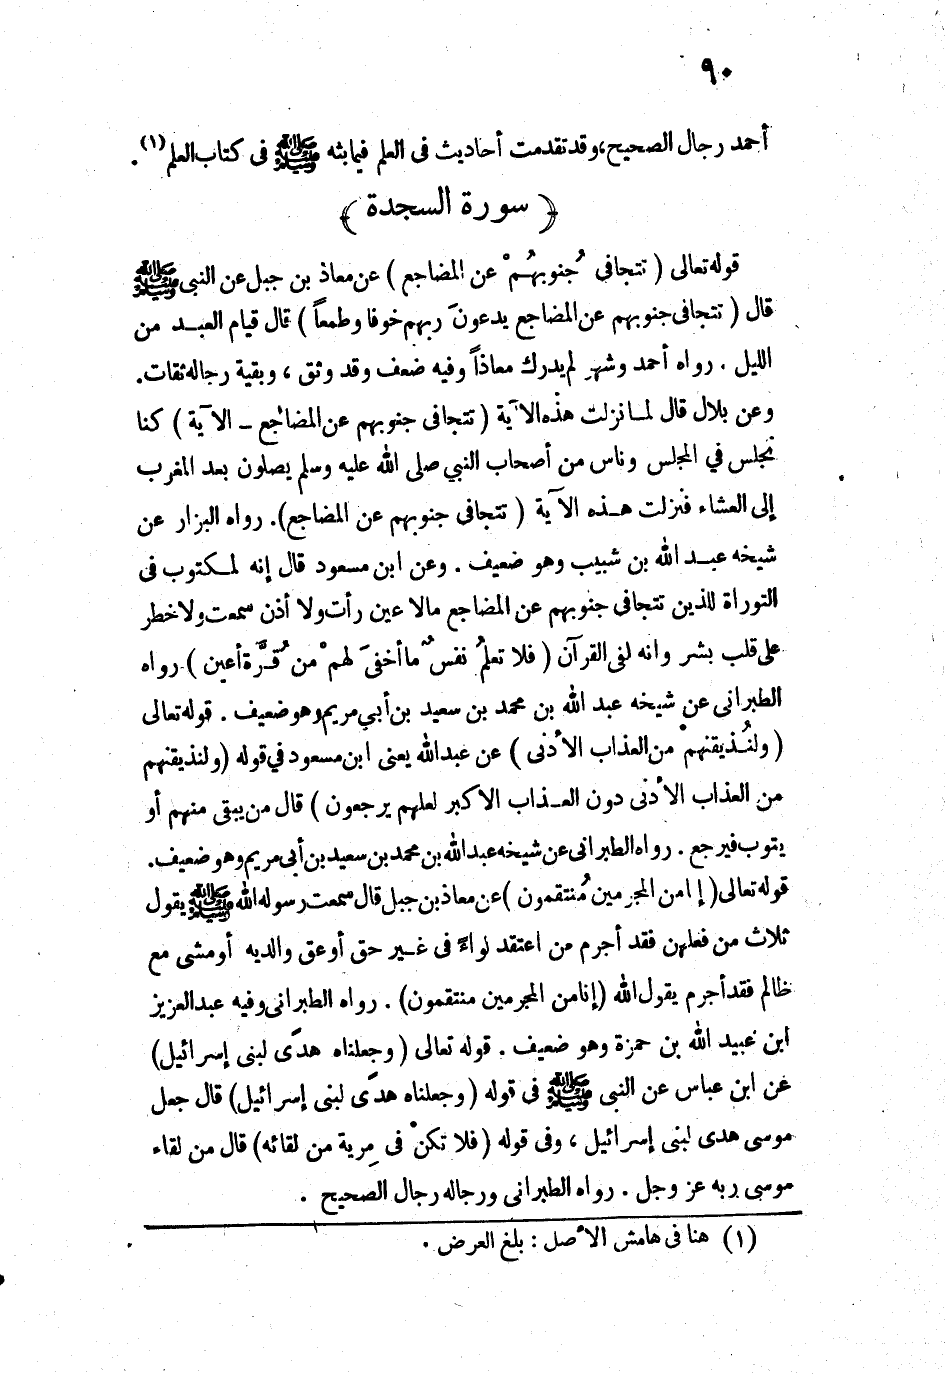 ٩٠
أحمد رجال الصحيح، وقد تقدمت أحاديث فى العلم فيما بثه ﷺ فى كتاب العلم (١) .
﴿ سورة السجدة ﴾
قوله تعالى ( تتجافى جُنوبهُمْ عن المضاجع ) عن معاذ بن جبل عن النبى ﷺ
قال ( تتجافى جنوبهم عن المضاجع يدعونَ ربهم خوفا وطمعاً ) قال قيام العبد من
الليل . رواه أحمد وشهر لم يدرك معاذاً وفيه ضعف وقد وثق ، وبقية رجاله ثقات.
وعن بلال قال لما نزلت هذه الآية ( تتجافى جنوبهم عن المضاجع - الآية ) كنا
نجلس في المجلس وناس من أصحاب النبي صلى الله عليه وسلم يصلون بعد المغرب
إلى العشاء فنزلت هذه الآية ( تتجافى جنوبهم عن المضاجع). رواه البزار عن
شيخه عبد الله بن شبيب وهو ضعيف . وعن ابن مسعود قال إنه لمكتوب فى
التوراة للذين تتجافى جنوبهم عن المضاجع مالا عين رأت ولا أذن سمعت ولا خطر
على قلب بشر وانه لفى القرآن ( فلا تعلمُ نفسٌ ما أخفىَ لهمْ من قُرَّة أعين ) رواه
الطبرانى عن شيخه عبد الله بن محمد بن سعيد بن أبي مريم وهو ضعيف . قوله تعالى
( ولنُذيقنهمْ من العذاب الأدنى ) عن عبد الله يعنى ابن مسعود في قوله (ولنذيقنهم
من العذاب الأدنى دون العذاب الاكبر لعلهم يرجعون ) قال من يبقى منهم أو
يتوب فيرجع . رواه الطبرانى عن شيخه عبد الله بن محمد بن سعيد بن أبى مريم وهو ضعيف.
قوله تعالى ( إنا من المجرمين مُنتقمون ) عن معاذ بن جبل قال سمعت رسول الله ﷺ يقول
ثلاث من فعلهن فقد أجرم من اعتقد لواءً فى غير حق أو عق والديه أو مشى مع
ظالم فقد أجرم يقول الله (إنا من المجرمين منتقمون) . رواه الطبرانى وفيه عبد العزيز
ابن عبيد الله بن حمزة وهو ضعيف . قوله تعالى ( وجعلناه هدًى لبنى إسرائيل)
عن ابن عباس عن النبى ﷺ فى قوله ( وجعلناه هدًى لبنى إسرائيل) قال جعل
موسى هدى لبنى إسرائيل ، وفى قوله ( فلا تكنْ فى مِرية من لقائه) قال من لقاء
موسى ربه عز وجل . رواه الطبرانى ورجاله رجال الصحيح .
(١) هنا فى هامش الأصل : بلغ العرض .